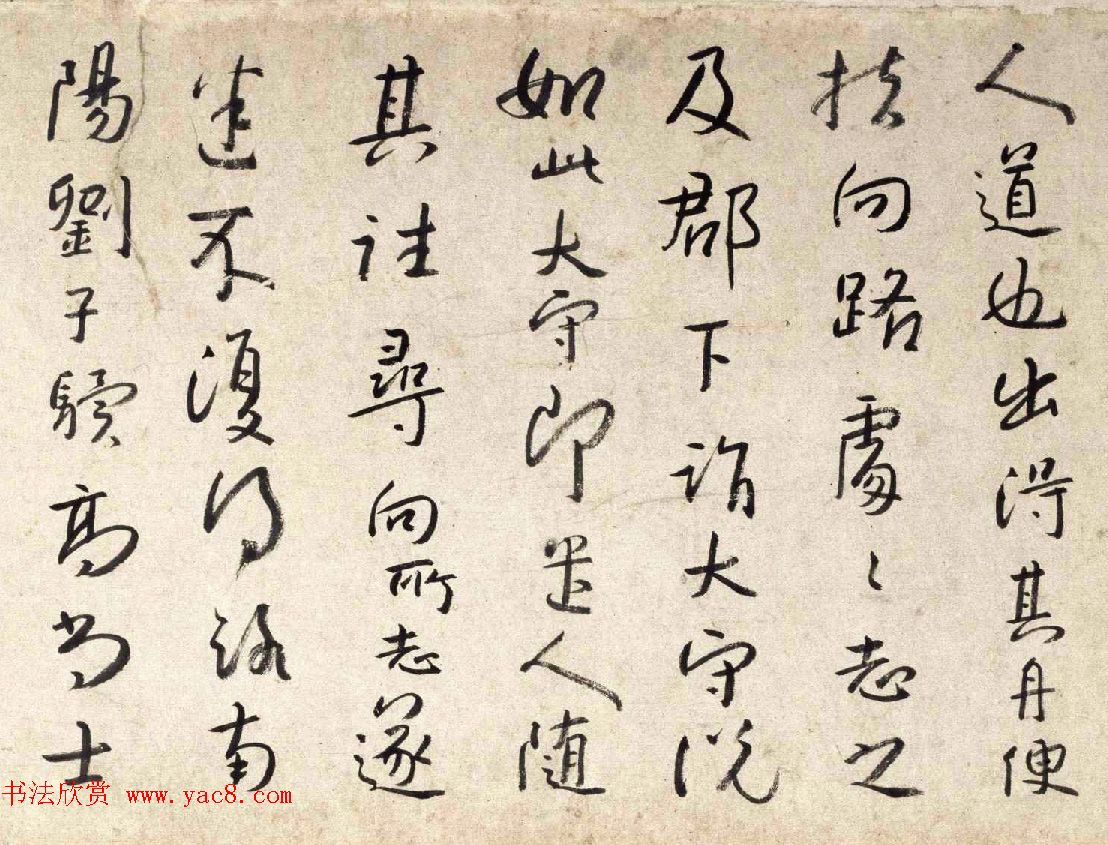 人道也出得其舟便
扶向路處〻志之
及郡下詣大守說
如此大守即遣人隨
其往尋向所志遂
迷不復得路南
陽劉子驥高尚士
书法欣赏 www.yac8.com